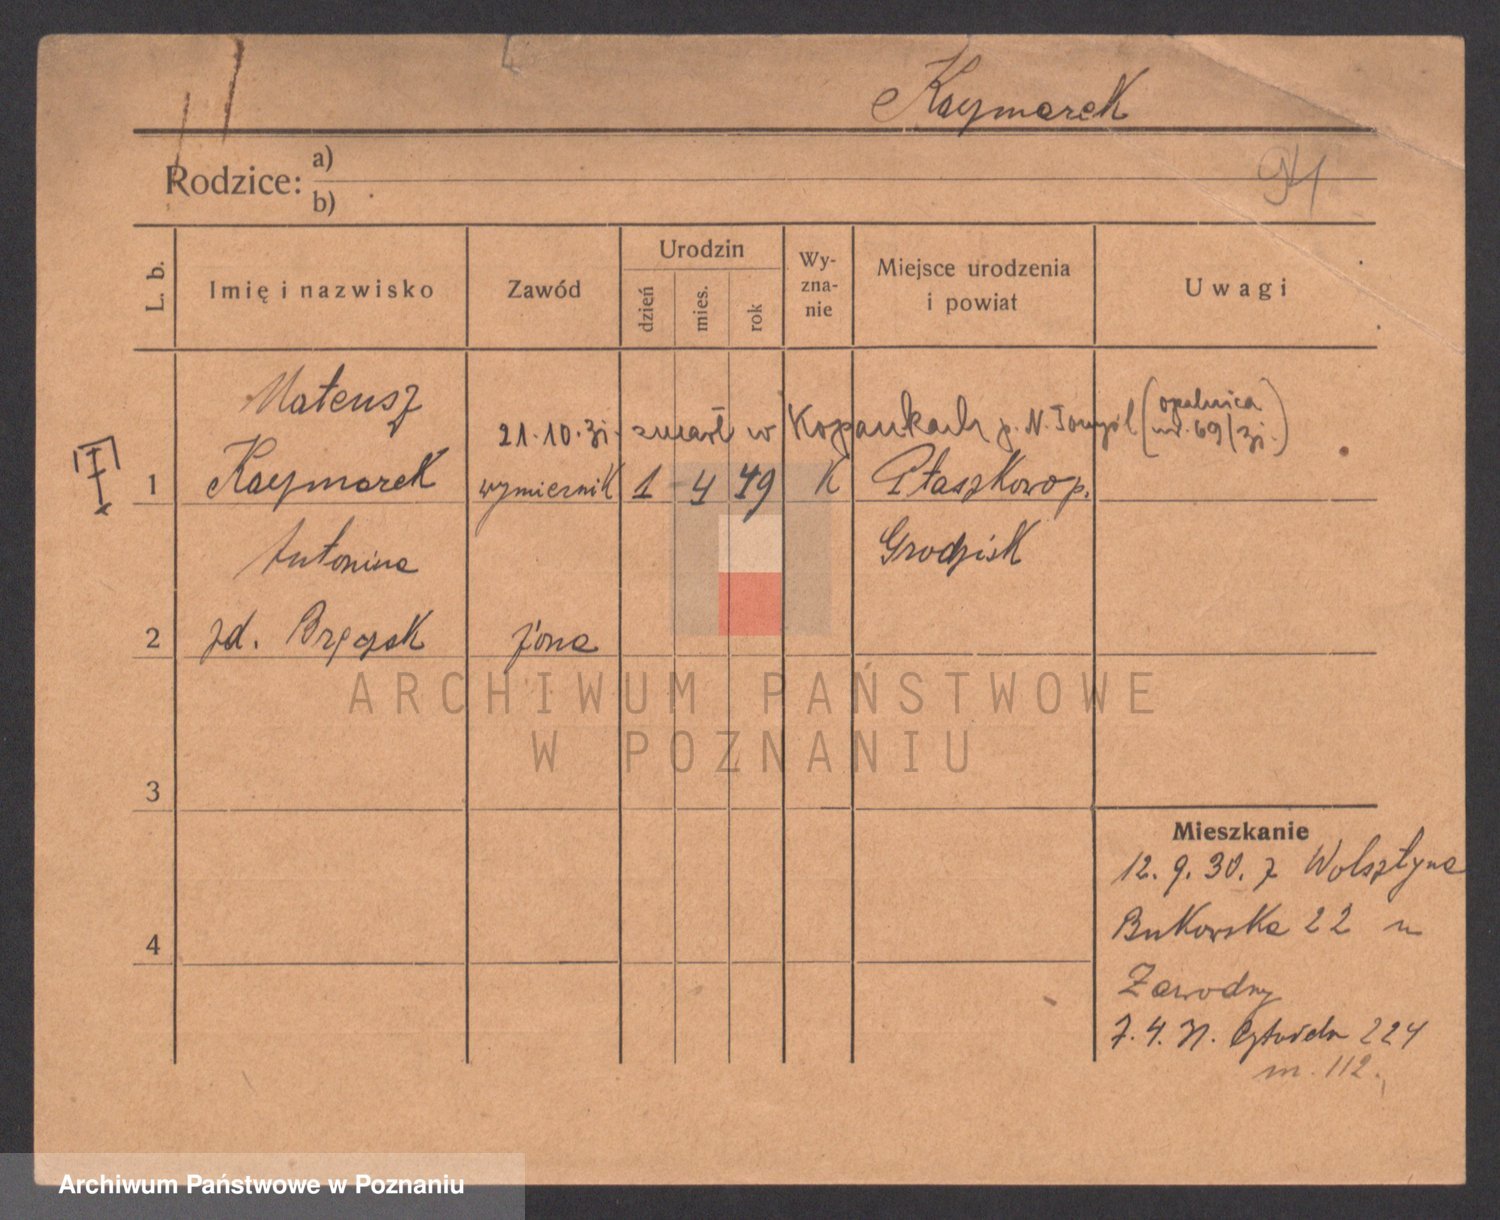 Kaczmarek
94
Rodzice: a)
b)
L. b. Imię i nazwisko Zawód Urodzin dzień mies. rok Wy-zna-nie Miejsce urodzenia i powiat Uwagi
Mateusz
21.10.31. zmarł w Kopankach p. N. Tomyśl (opalenica nr. 69/31.)
1 Kaczmarek wymiernik 1 4 79 K Ptaszkowo p.
Antonina Grodzisk
2 zd. żona
ARCHIWUM PAŃSTWOWE
W POZNANIU
3
Mieszkanie
12.9.30. z Wolsztyna
4 Bukowska 22 u
Zawodny
7.4.31. Cytadela 224
m. 112.
Archiwum Państwowe w Poznaniu